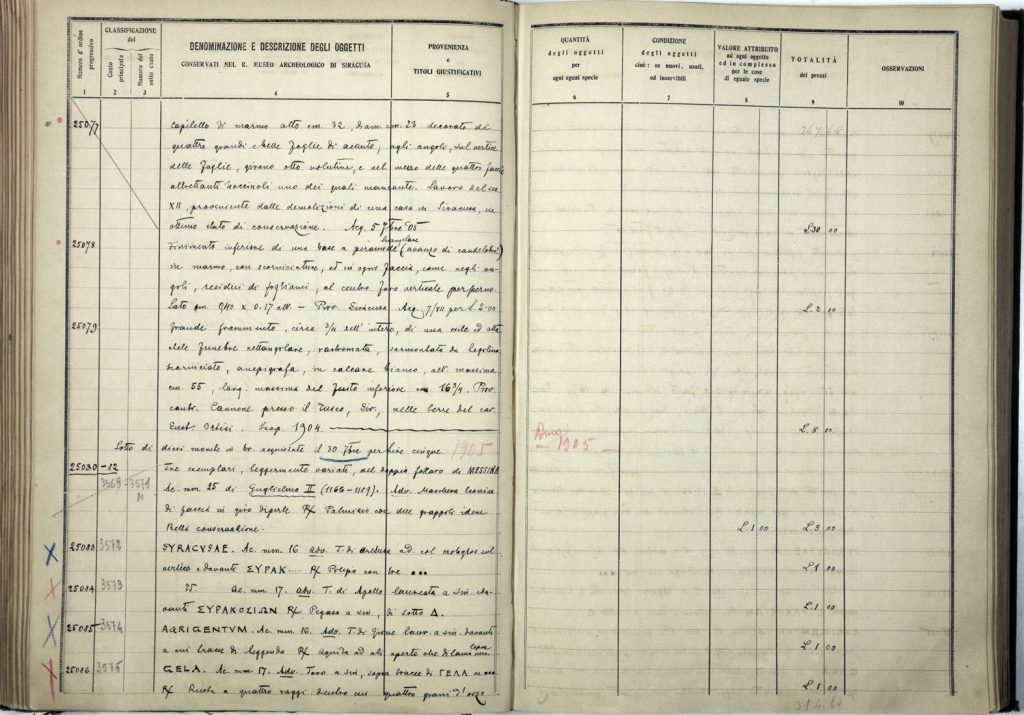 CLASSIFICAZIONE
del
Numero d'ordine progressivo
Conto principale
Numero del sotto conto
DENOMINAZIONE E DESCRIZIONE DEGLI OGGETTI
CONSERVATI NEL R. MUSEO ARCHEOLOGICO DI SIRACUSA
PROVENIENZA
e
TITOLI GIUSTIFICATIVI
QUANTITÀ
degli oggetti
per
ogni egual specie
CONDIZIONE
degli oggetti
cioè: se nuovi, usati,
od inservibili
VALORE ATTRIBUITO
ad ogni oggetto
ed in complesso
per le cose
di eguale specie
TOTALITÀ
dei prezzi
OSSERVAZIONI
1 2 3 4 5 6 7 8 9 10
25077 Capitello di marmo alto cm. 32, diam. cm. 23 decorato di
quattro grandi foglie di acanto, agli angoli, sul vertice
delle foglie, girano otto volutine, e nel mezzo delle quattro faccie
altrettanti bocciuoli uno dei quali mancante. Lavoro del sec
XII, proveniente dalle demolizioni di una casa in Siracusa, in
ottimo stato di conservazione. Acq. 5 7bre 05 L. 30 00
25078 Finimento inferiore di una base a (avanzo di candelabro?)
in marmo, con scorniciature, ed in ogni faccia, come negli an-
goli, residui di fogliami, al centro foro verticale per perno.
Lato cm. 0.17 alt. - Prov. Siracusa Acq. 7/VII per L. 2.00 L. 2 00
25079 Grande frammento, circa 3/4 dell'intero, di una
stele funebre rettangolare, rastremata, sormontata da
scorniciato, anepigrafa, in calcare bianco, alt. massima
cm. 55, larg. massima del fusto inferiore cm 16 3/4. Prov.
contr. Cannone presso il Fusco, Sir., nelle terre del cav.
Ortisi. Scop. 1904. L. 8 00
Lotto di dieci monete in br. acquistate il 30 7bre per lire cinque. 1905
1905
25080 - 82 Tre esemplari, leggermente variati, del doppio follaro di MESSINA
3569 - 3571 Ae. mm. 25 di Guglielmo II (1166-1189). Adv. Maschera leonina
di faccia in giro di perle R/ Palmizio con due grappoli idem
Bella conservazione. L. 1 00 L. 3 00
25083 3572 SYRACVSAE. Ae. mm. 16 adv. T. di Aretusa ad. col sul
vertice e davanti ΣΥΡΑΚ.... R/ Polipo con tre •••
L. 1 00
25084 3573 Ae. mm. 17. adv. T. di Apollo laureata a sin. da-
vanti ΣΥΡΑΚΟΣΙΩΝ R/ Pegaso a sin., di sotto Δ.
L. 1 00
25085 3574 AGRIGENTVM. Ae. mm. 16. Adv. T. di Giove laur. a sin. davanti
a cui tracce di leggenda R/ aquila ad ali aperte che dilania una lepre
L. 1 00
25086 3575 GELA. Ae. mm. 17. Adv. Toro a sin, sopra tracce di ΓΕΛΑ •••
R/ Ruota a quattro raggi dentro cui quattro grani d'orzo
L. 1 00